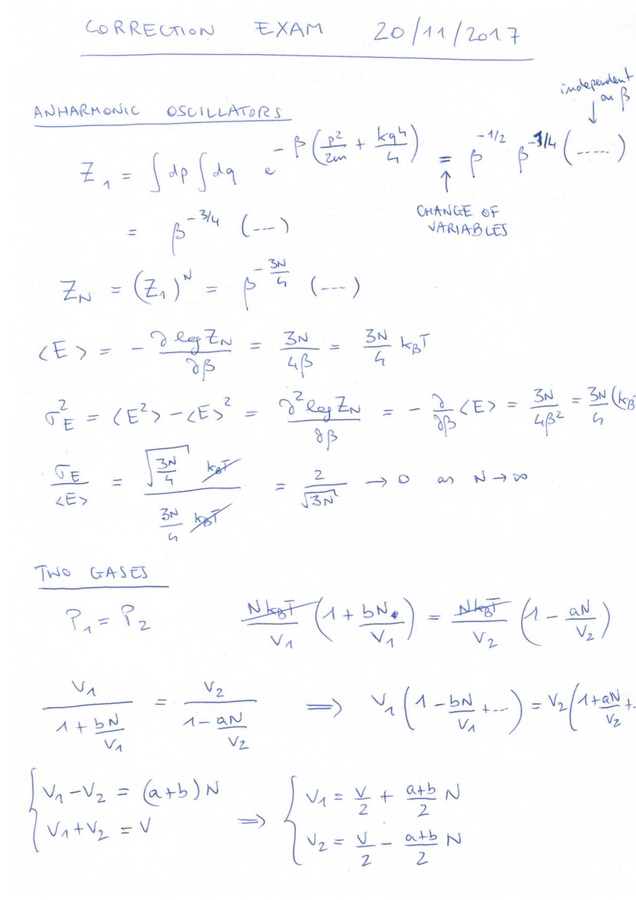 CORRECTION EXAM 20/11/2017
independent on β
ANHARMONIC OSCILLATORS
Z₁ = ∫dp ∫dq e^{-β(p²/2m + kq⁴/4)} = β^{-1/2} β^{-1/4} (.....)
CHANGE OF
VARIABLES
= β^{-3/4} (---)
Z_N = (Z₁)^N = β^{-3N/4} (---)
<E> = - ∂log Z_N/∂β = 3N/4β = 3N/4 k_BT
σ_E² = <E²> - <E>² = ∂²log Z_N/∂β = - ∂/∂β <E> = 3N/4β² = 3N/4 (k_B
σ_E/<E> = √(3N/4) k_BT / (3N/4 k_BT) = 2/√3N → 0 as N→∞
TWO GASES
P₁ = P₂ Nk_BT/V₁ (1 + bN/V₁) = Nk_BT/V₂ (1 - aN/V₂)
V₁/(1 + bN/V₁) = V₂/(1 - aN/V₂) ⟹ V₁(1 - bN/V₁ + ...) = V₂(1 + aN/V₂ + .
{ V₁ - V₂ = (a+b)N ⟹ { V₁ = V/2 + (a+b)/2 N
V₁ + V₂ = V V₂ = V/2 - (a+b)/2 N